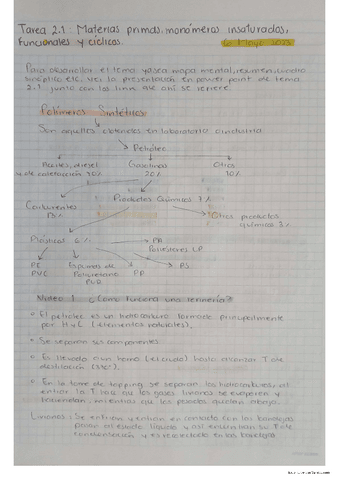 Tarea 2.1: Materias primas, monómeros insaturados,
funcionales y cíclicos. 6 Mayo 2023
Para desarrollar el tema ya sea mapa mental, resumen, cuadro
sinóptico etc. ver la presentación en power point de tema
2.1 junto con los link que ahí se refiere
Polímeros Sintéticos
Son aquellos obtenidos en laboratorio o industria
Petróleo
Aceites, diesel Gasolinas Otros
y de calefacción 70% 20% 10%
Productos Químicos 7%
Carburantes Otros productos
13% químicos 3%
Plásticos 4% PA
Poliésteres CP
PE Espumas de PP PS
PVC Poliuretano
PUR
Video 1 ¿Cómo funciona una refinería?
El petróleo es un hidrocarburo formado principalmente
por H y C (elementos
Se separan sus componentes
Es llevado a un horno (el crudo) hasta alcanzar T de
destilación
En la torre de topping se separan los hidrocarburos, al
entrar la T hay que los gases livianos se evaporen y
asciendan, mientras que los pesados quedan abajo.
Livianos: Se enfrían y entran en contacto con las bandejas
pasan al estado líquido y así encuentran su T de
condensación y es recolectado en las bandejas